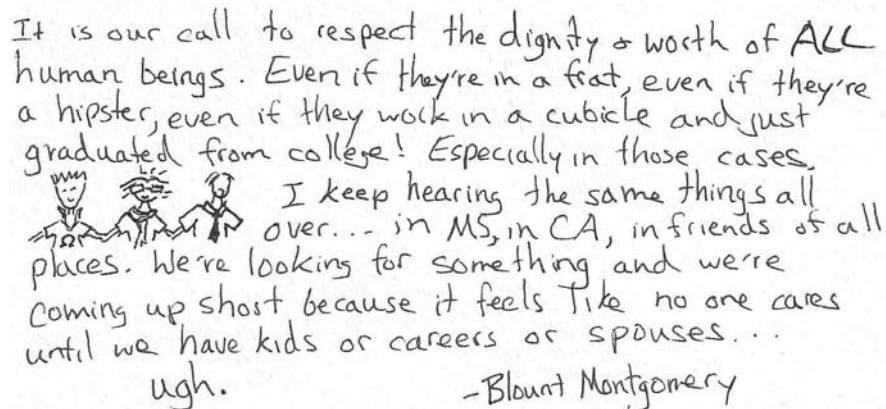 It is our call to respect the dignity & worth of ALL
human beings. Even if they're in a frat, even if they're
a hipster, even if they work in a cubicle and just
graduated from college! Especially in those cases.
I keep hearing the same things all
over... in MS, in CA, in friends of all
places. We're looking for something and we're
coming up short because it feels like no one cares
until we have kids or careers or spouses...
ugh. -Blount Montgomery